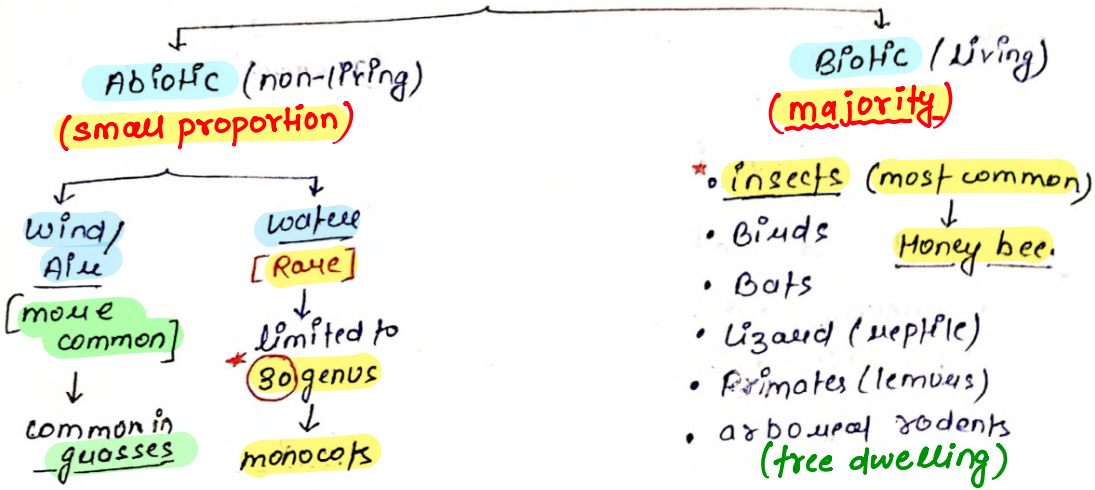 Abiotic (non-living)
(small proportion)
Wind/
Air
[more
common]
common in
grasses
Water
[Rare]
limited to
* 30 genus
monocots
Biotic (Living)
(majority)
* • insects (most common)
Honey bee.
• Birds
• Bats
• Lizard (reptile)
• Primates (lemurs)
• arboreal rodents
(tree dwelling)